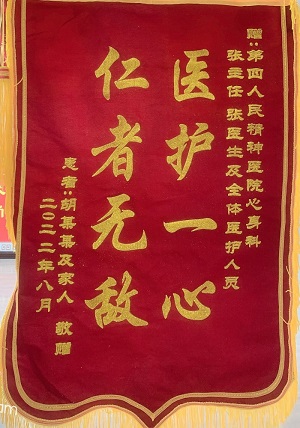 赠：第四人民精神医院心身科
张主任 张医生及全体医护人员
医护一心
仁者无敌
患者：胡某某及家人 敬赠
二〇二二年八月